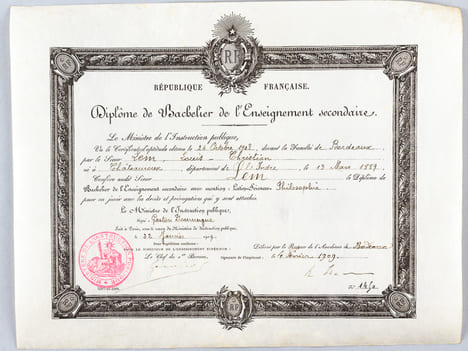 RF
RÉPUBLIQUE FRANÇAISE.
Diplôme de Bachelier de l'Enseignement secondaire.
Le Ministre de l'Instruction publique,
Vu le Certificat d'aptitude obtenu le 26 Octobre 1908, devant la Faculté de Bordeaux
par le Sieur Lem, Louis-Christian
né à Châteauroux, département de l'Indre, le 13 Mars 1889.
Confère audit Sieur Lem le Diplôme de
Bachelier de l'Enseignement secondaire avec mention: Latin-Sciences Philosophie
pour en jouir avec les droits et prérogatives qui y sont attachés.
Le Ministre de l'Instruction publique,
Signé: Gaston Doumergue
Fait à Paris, sous le sceau du Ministère de l'Instruction publique,
le Janvier 1909.
Pour Expédition conforme:
LE DIRECTEUR DE L'ENSEIGNEMENT SUPÉRIEUR
Le Chef du Bureau,
Délivré par le Recteur de l'Académie de Bordeaux
Signature de l'Impétrant: le Février 1909
RF